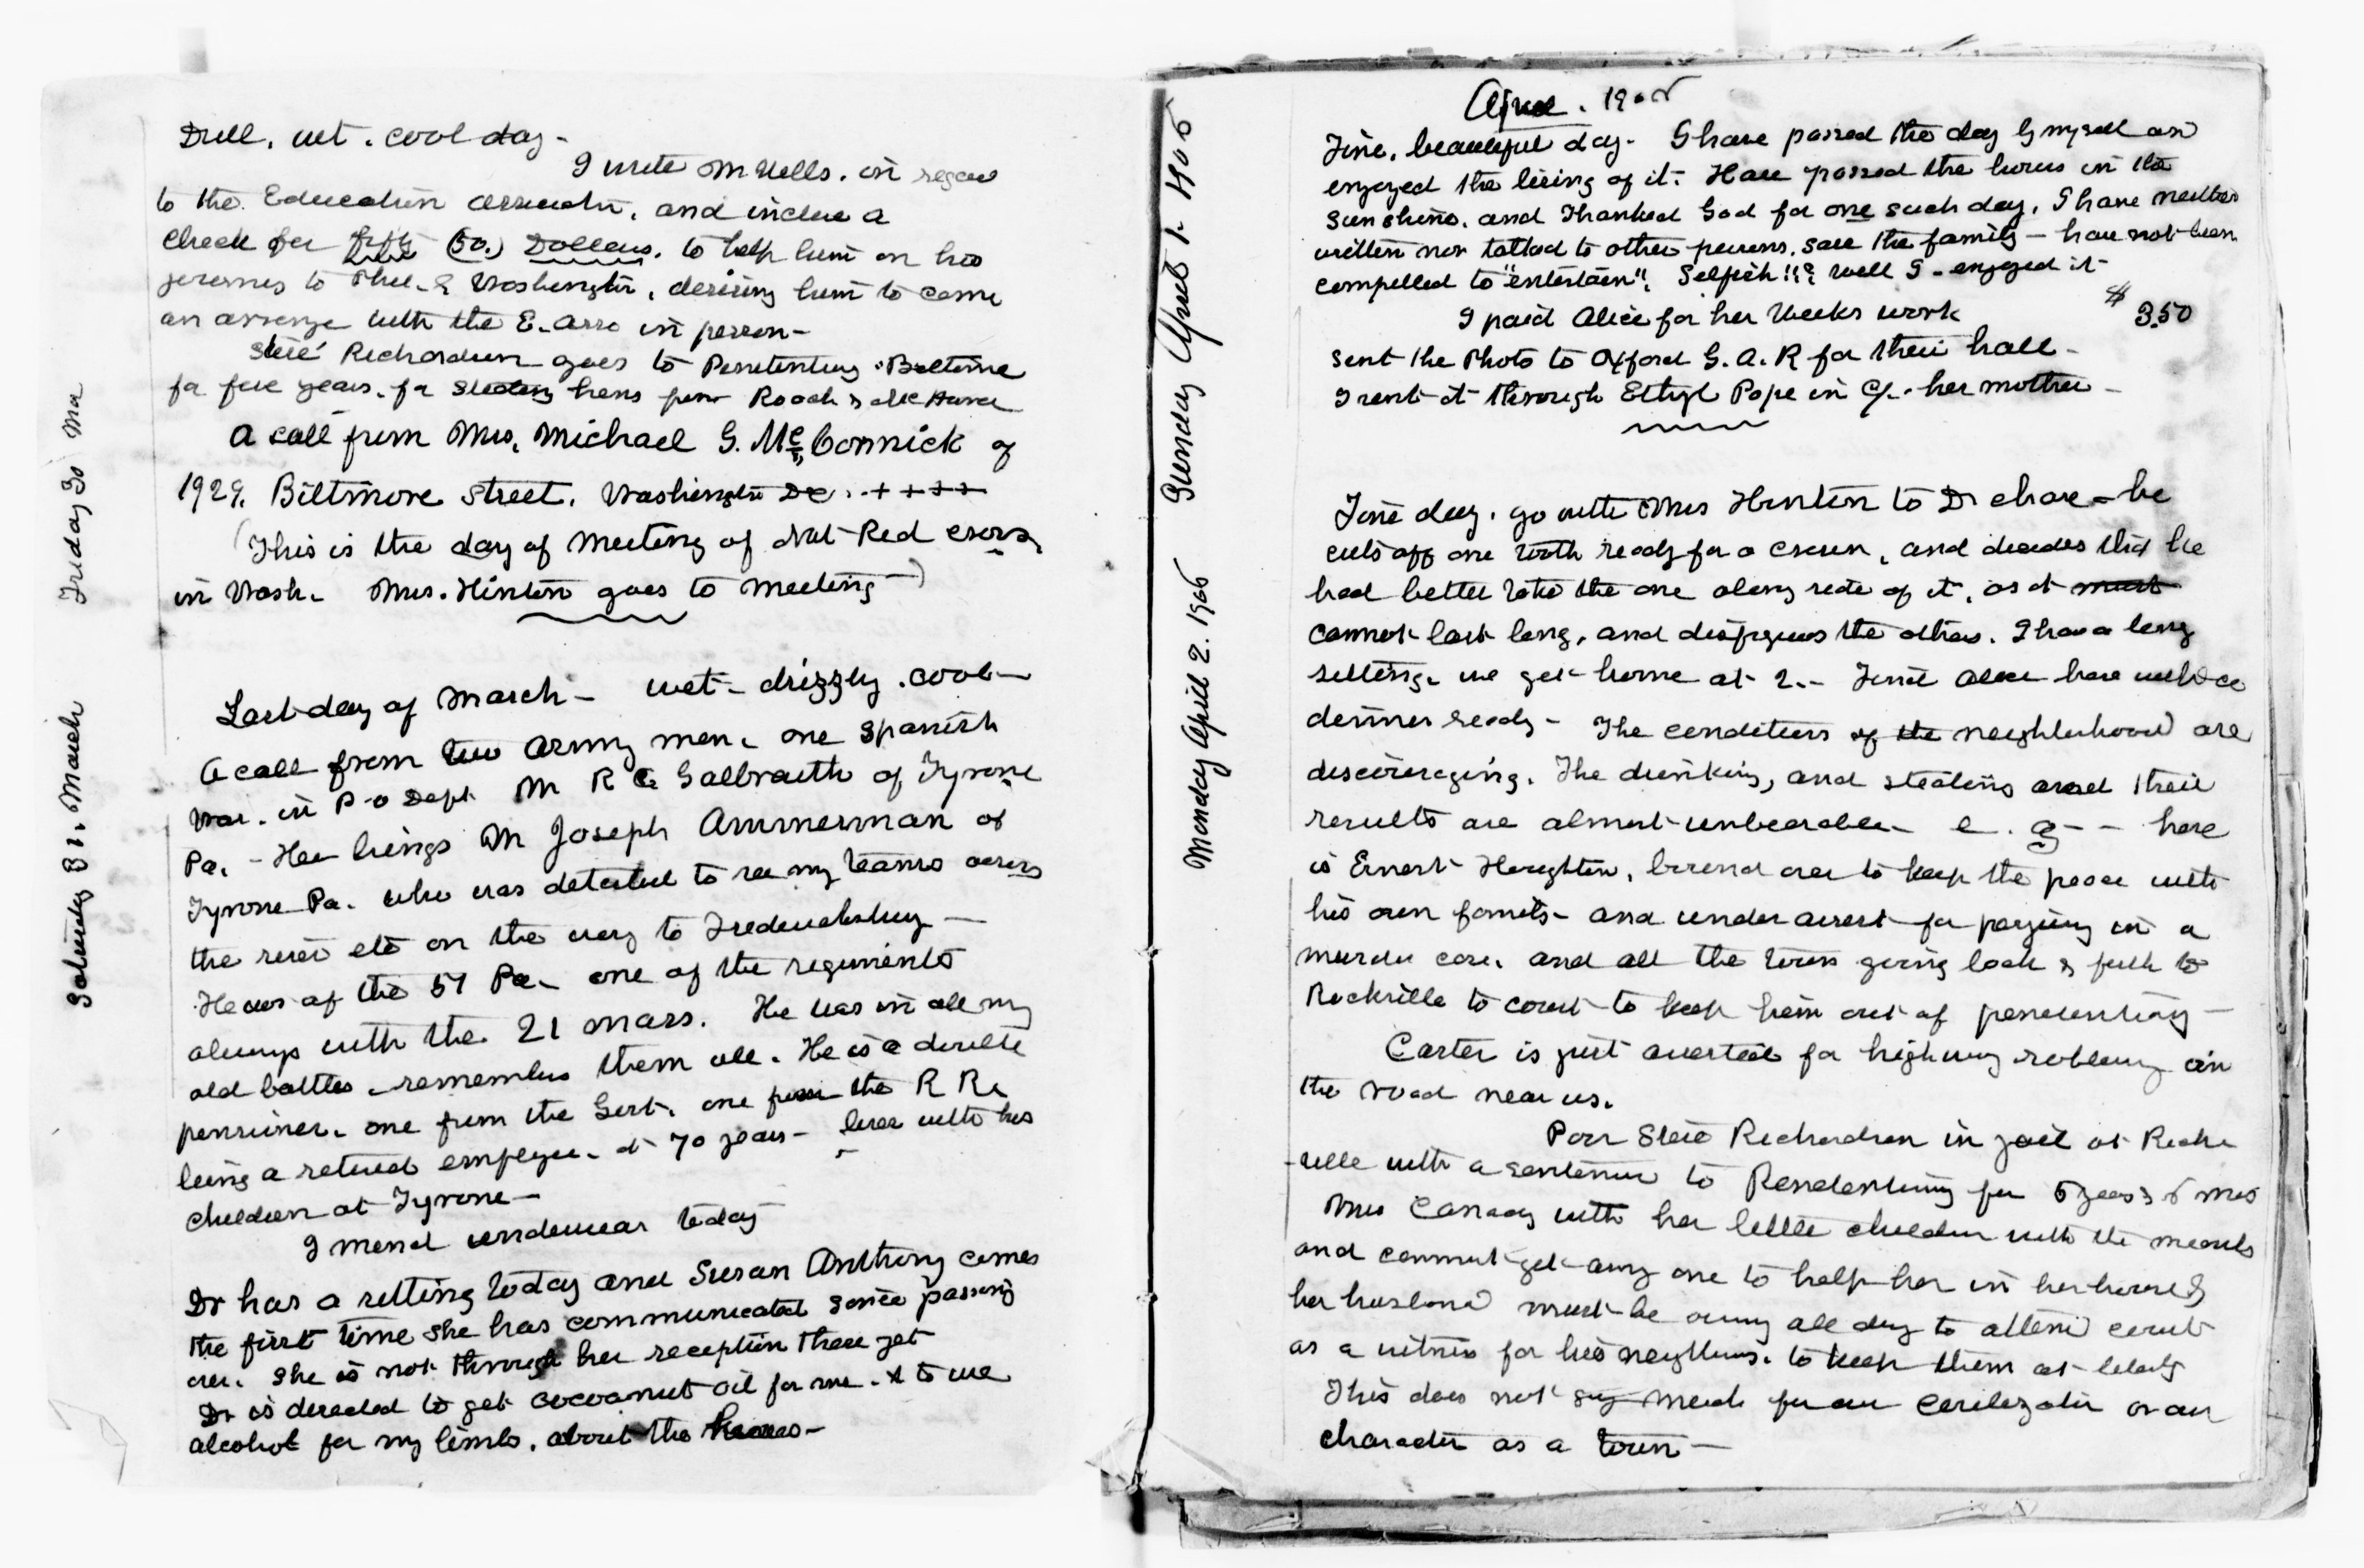 Friday 30 Ma
Dull, wet. cool day -
I write Mr Wells. in regard
to the Education , and inclose a
check for fifty (50.) Dollars. to help him on his
journey to Phil. & Washington, desiring him to come
an arrange with the E. Asso in person -
Steve Richardson goes to Penitentiary Baltimore
for five years. for stealing hens from Roach &
A call from Mrs. Michael G. McCormick of
1929. Biltmore Street. Washington DC. . + + + +
(This is the day of meeting of Nat Red cross
in Wash. Mrs. Hinton goes to meeting -)
Saturday 31. March
Last day of March - wet - drizzly . cool -
A call from two Army men. one Spanish
War. in P.O Dept. Mr R C Galbraith of Tyrone
Pa. - He brings Mr Joseph Ammerman of
Tyrone Pa. who was detailed to see my teams across
the river etc on the way to Fredericksburg -
He was of the 57 Pa. one of the regiments
always with the 21 Mass. He was in all my
old battles - remembers them all. He is a double
pensioner. one from the Govt. one from the R R.
being a retired employee. at 70 years - lives with his
children at Tyrone -
I mend underwear today
Dr has a sitting today and Susan Anthony comes
the first time she has communicated since passing
over. She is not through her reception there yet
Dr is directed to get cocoanut oil for me. & to use
alcohol for my limbs. about the knees -
April. 1906
Sunday April 1. 1906
Fine, beautiful day. I have passed the day by myself and
enjoyed the living of it. Have passed the hours in the
sunshine. and thanked God for one such day. I have neither
written nor talked to other persons, save the family - have not been
compelled to "entertain". Selfish!!? well I - enjoyed it -
I paid Alice for her weeks work $ 3.50
sent the Photo to Oxford G. A. R for their hall -
I sent it through Ethyl Pope in C/. her mother -
Monday April 2. 1906
Fine day. go with Mrs Hinton to Dr chase - he
cuts off one tooth ready for a crown, and decides that he
had better take the one along side of it, as it must
cannot last long, and disfigures the others. I have a long
sitting. we get home at 2. - Find Alice here with
dinner ready - The conditions of the neighborhood are
discouraging. The drinking, and stealing and their
results are almost unbearable - e. g - - here
is Ernest Houghton, bound over to keep the peace with
his own family - and under arrest for perjury in a
murder case. and all the town going back & forth to
Rockville to court to keep him out of penitentiary -
Carter is just arrested for highway robbery on
the road near us.
Poor Steve Richardson in jail at Rock
-ville with a sentence to Penitentiary for 5 years & 6 mos
Mrs Canady with her little children with the measles
and cannot get any one to help her in her house &
her husband must be away all day to attend court
as a witness for his neighbors. to keep them at liberty
This does not say much for our civilization or our
character as a town -